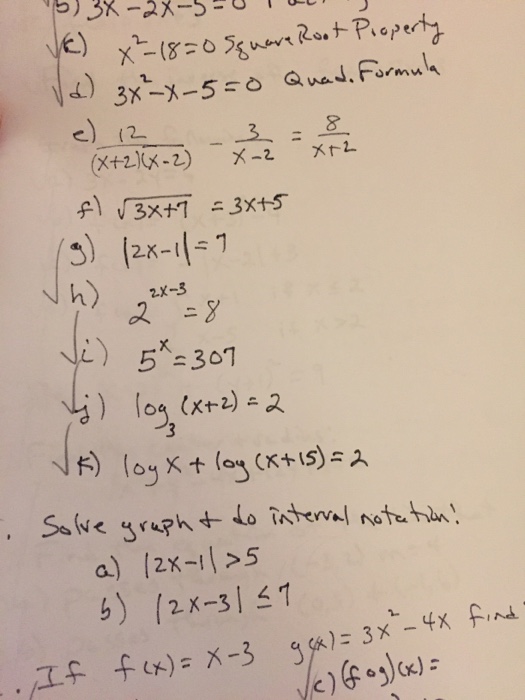 b) 3x²-2x-5=0
c) x²-18=0 Square Root Property
d) 3x²-x-5=0 Quad. Formula
e) 12/((x+2)(x-2)) - 3/(x-2) = 8/(x+2)
f) √(3x+7) = 3x+5
g) |2x-1|=7
h) 2^(2x-3) = 8
i) 5^x = 307
j) log₃ (x+2) = 2
k) log x + log (x+15) = 2
Solve graph & do interval notation!
a) |2x-1| >5
b) |2x-3| ≤ 7
If f(x) = x-3 g(x) = 3x² - 4x find
c) (f o g)(x) =